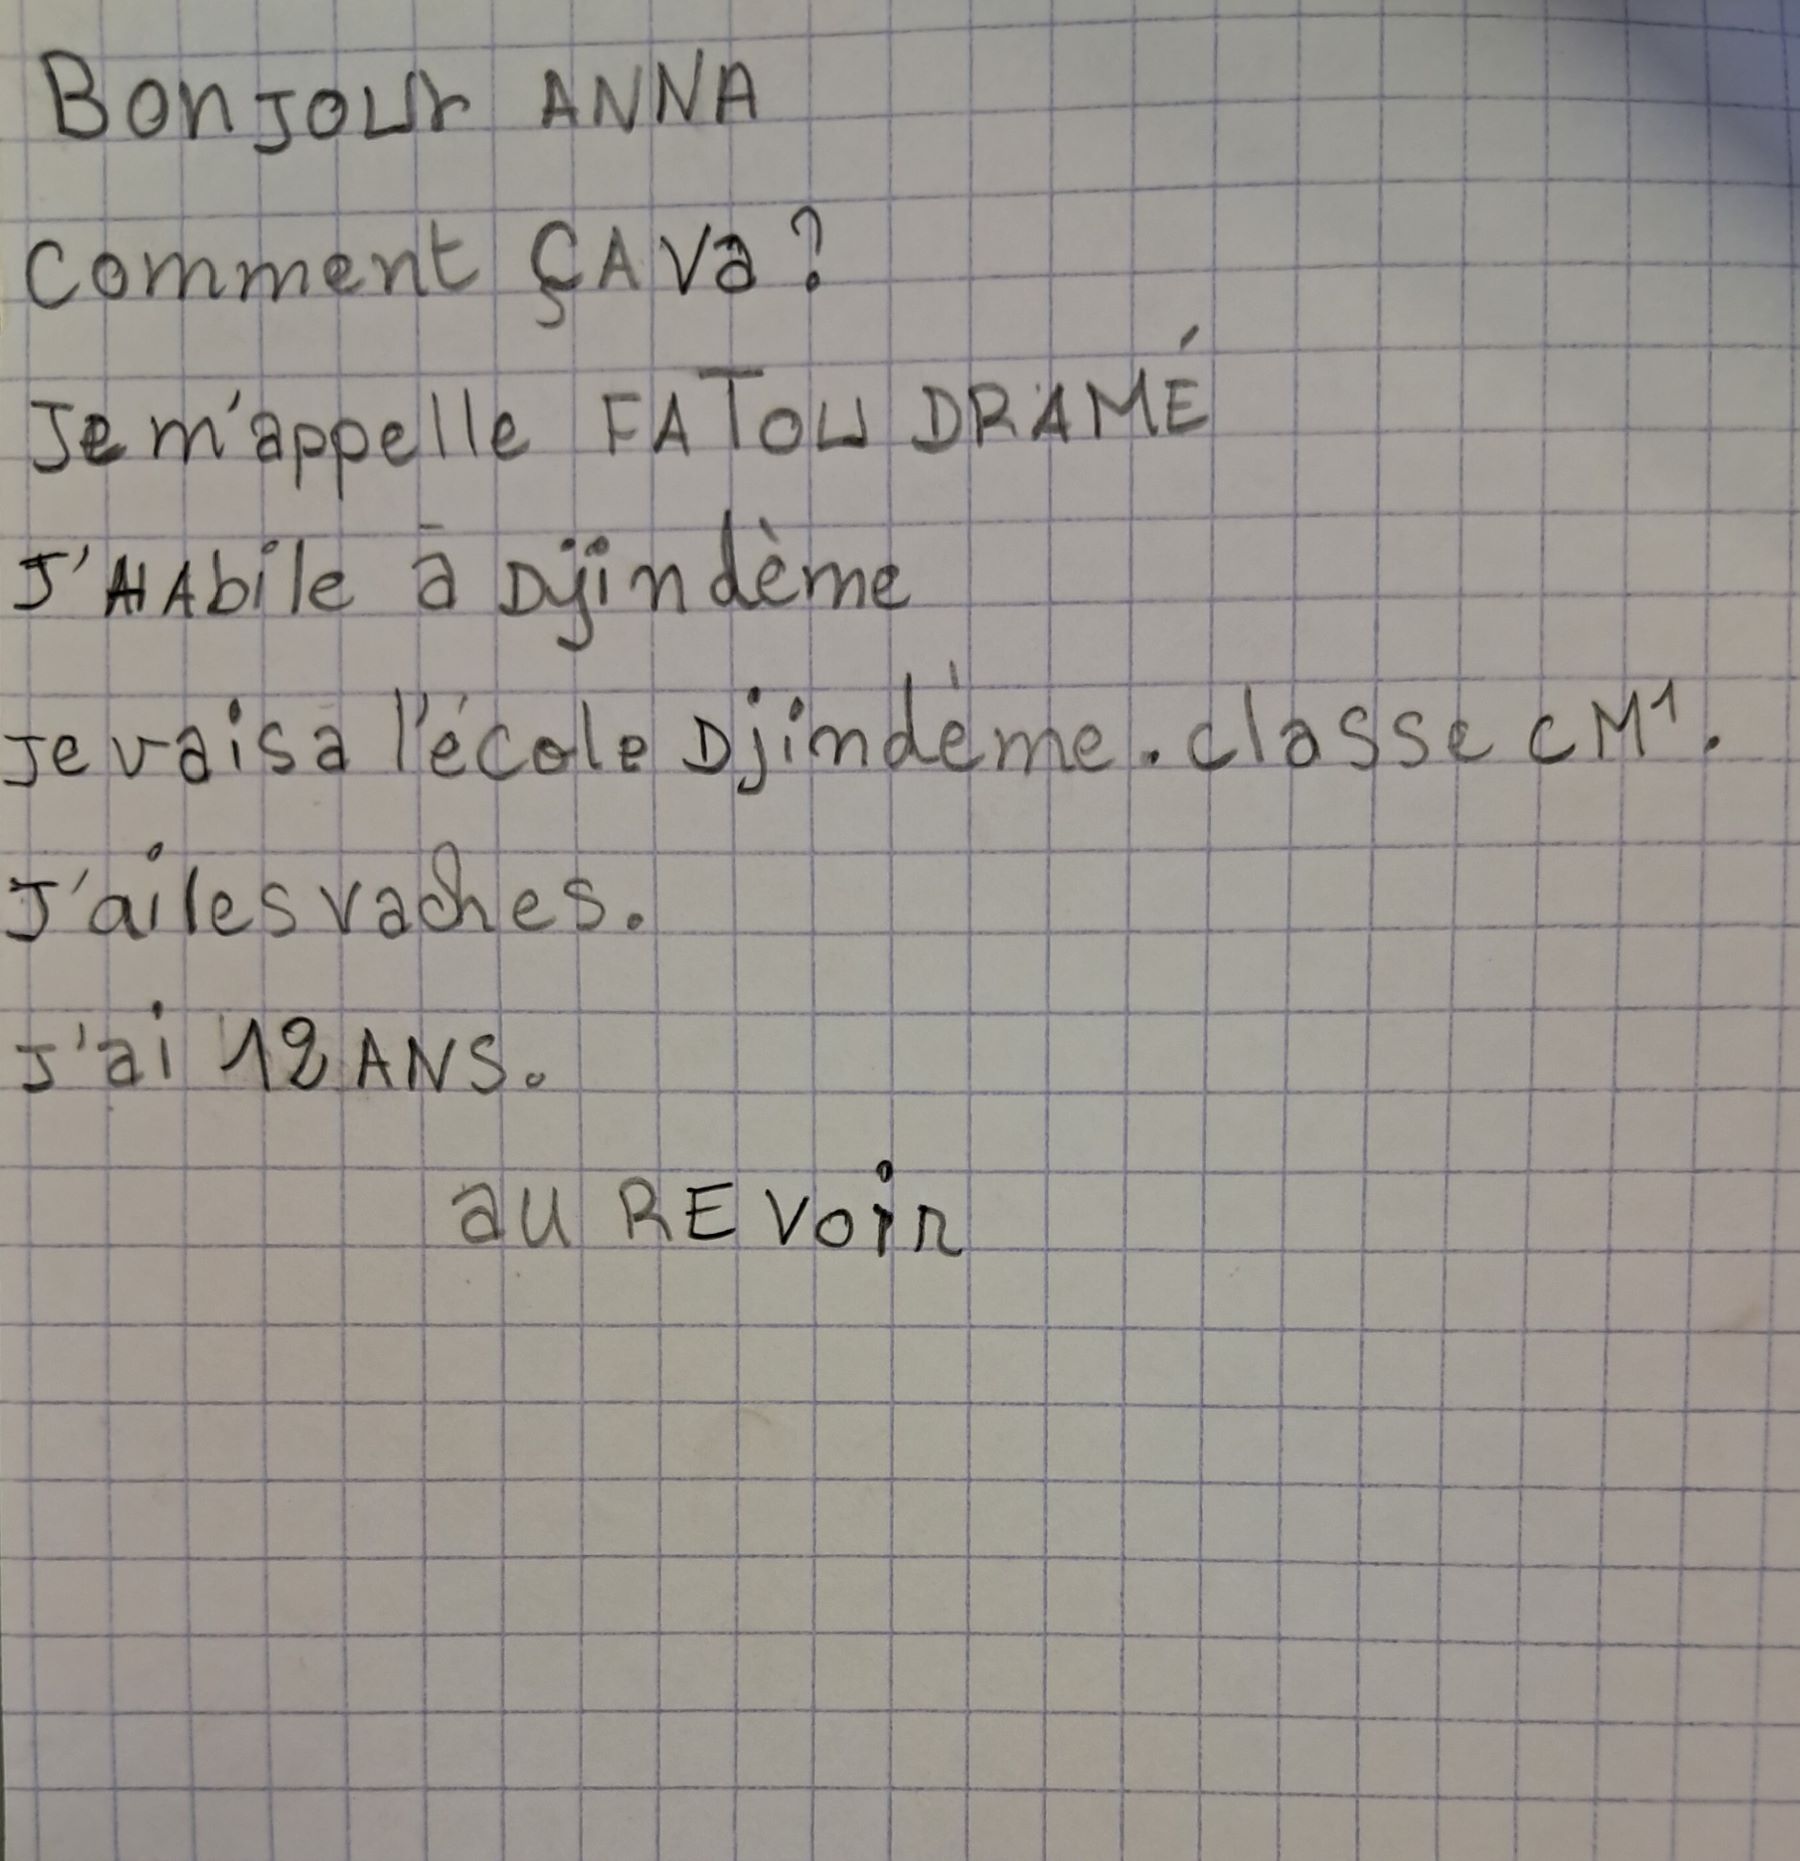 Bonjour ANNA
Comment ÇA Va ?
Je m'appelle FATOU DRAMÉ
J'HAbile à Djindème
Je vais a l'école Djindème. classe CM1.
J'ai les vaches.
J'ai 12 ANS.
au REVoir